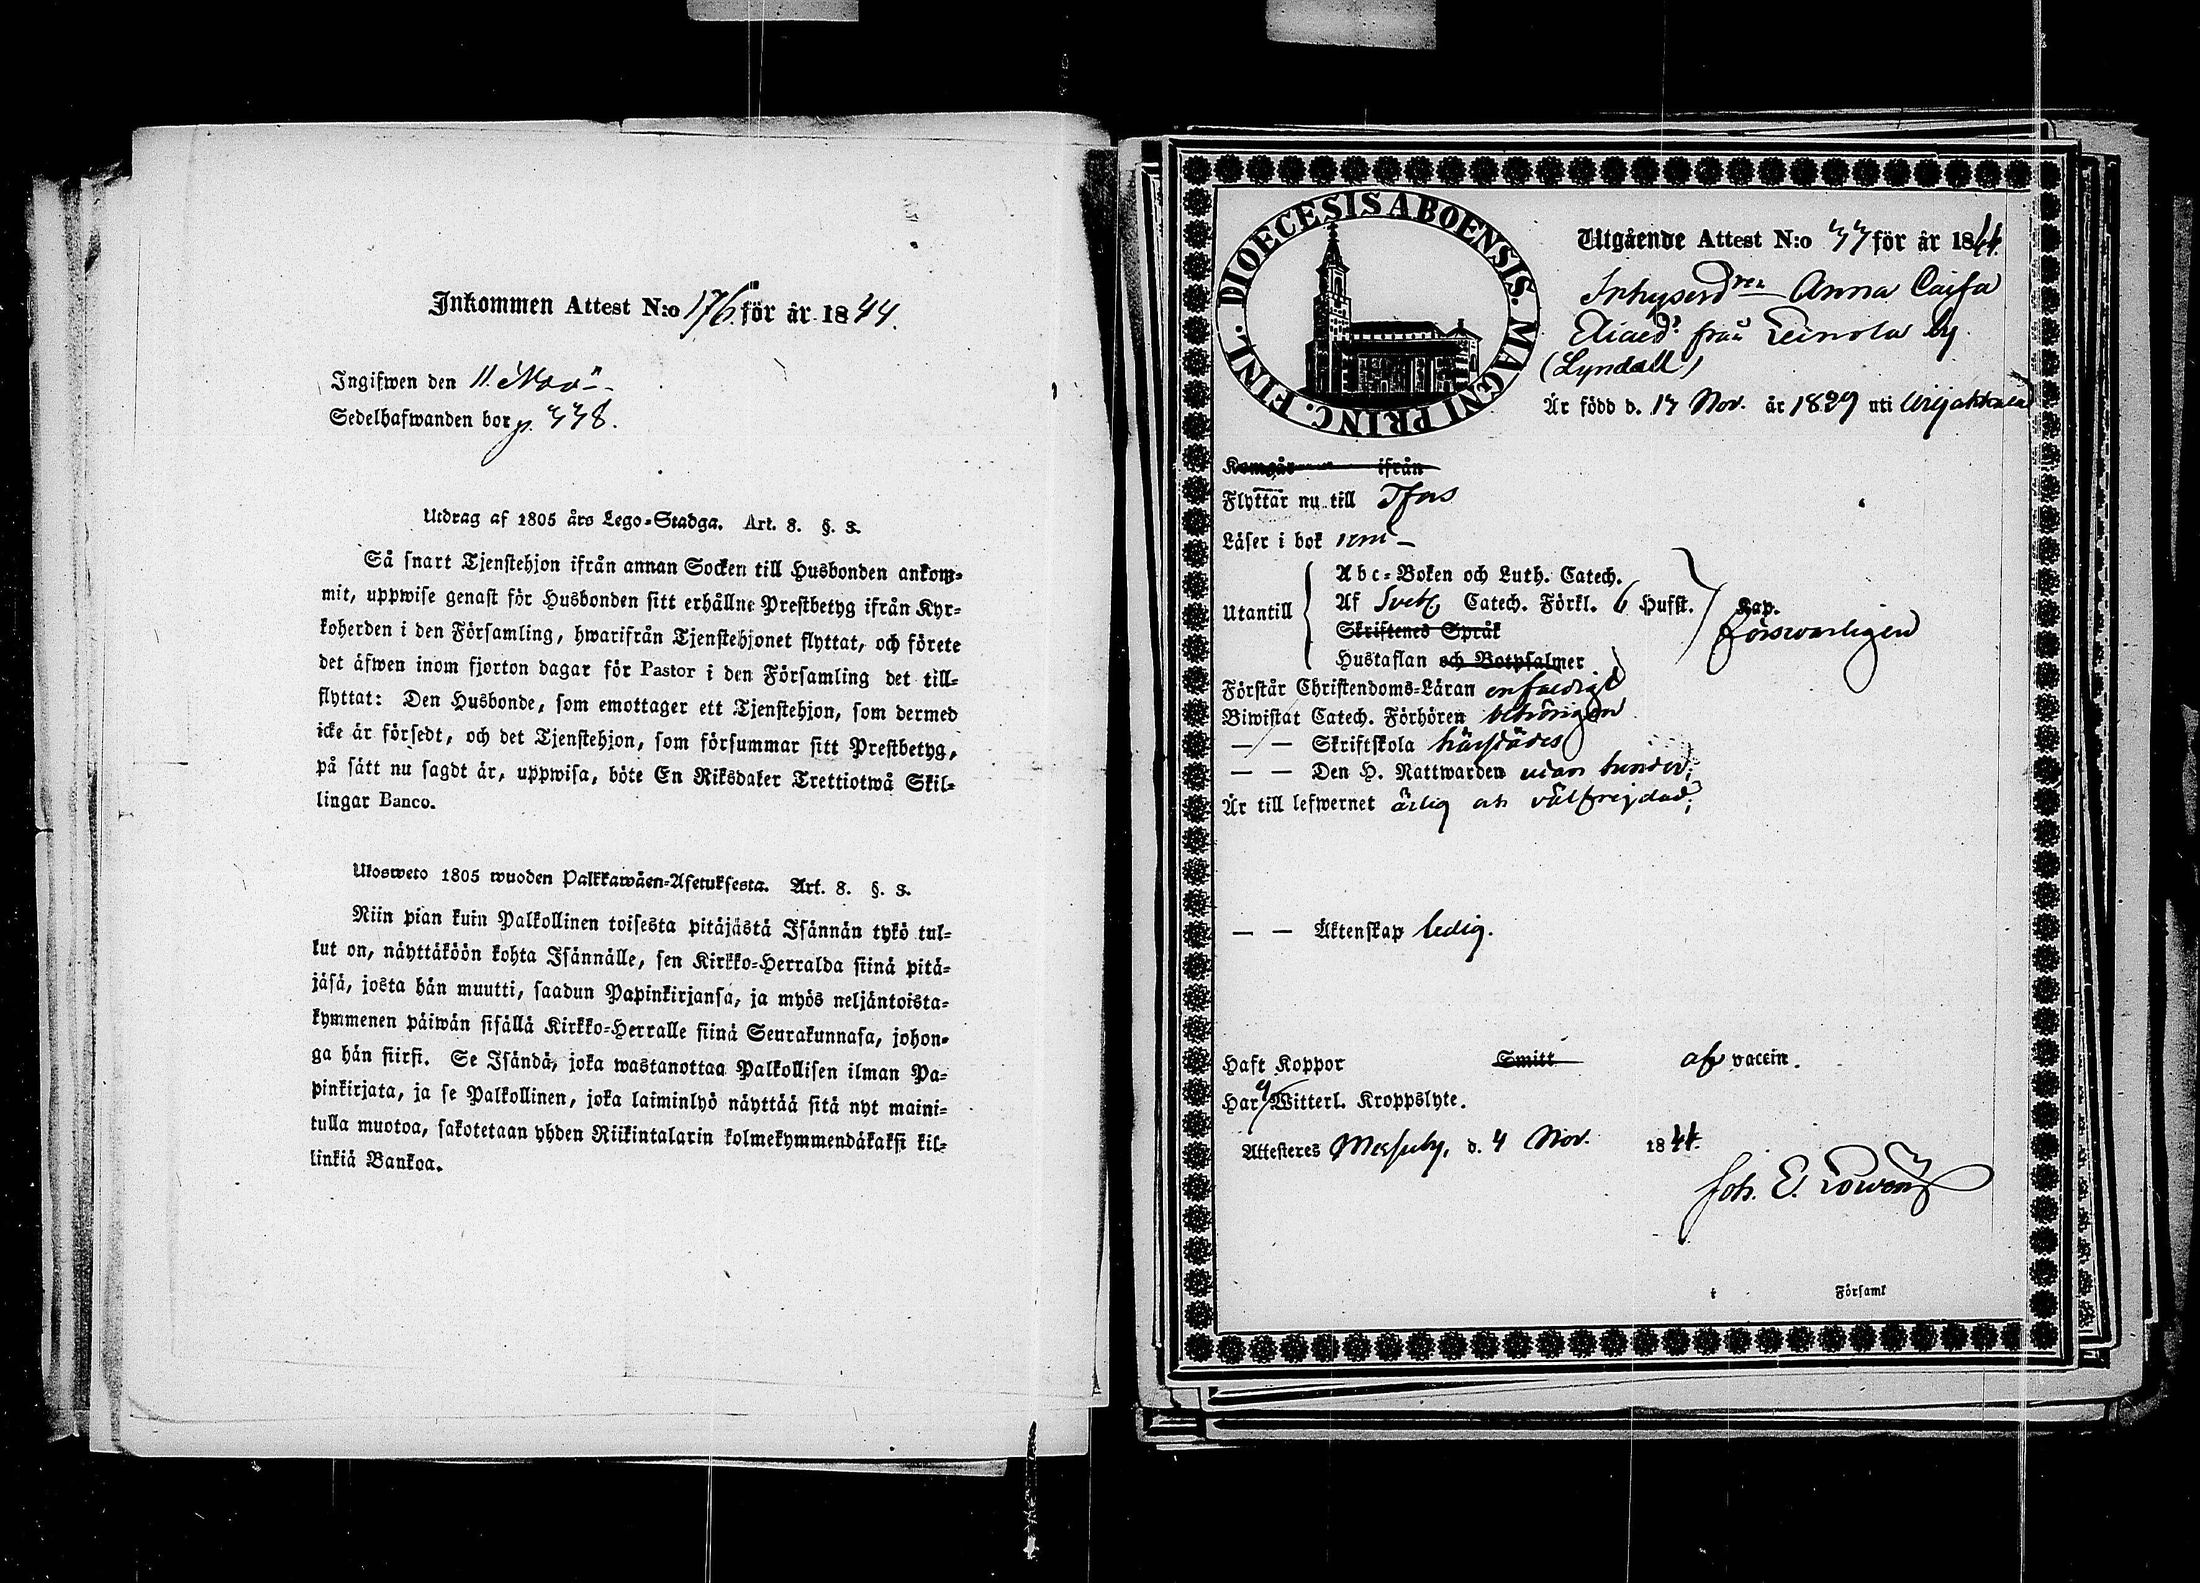 Inkommen Attest N:o 176. för år 1844.
Ingifwen den 11. Nov:
Sedelhafwanden bor p. 338.
Utdrag af 1805 års Lego-Stadga. Art. 8. §. 3.
Så snart Tjenstehjon ifrån annan Socken till Husbonden ankom-
mit, uppwise genast för Husbonden sitt erhållne Prestbetyg ifrån Kyr-
koherden i den Församling, hwarifrån Tjenstehjonet flyttat, och förete
det äfwen inom fjorton dagar för Pastor i den Församling det till-
flyttat: Den Husbonde, som emottager ett Tjenstehjon, som dermed
icke är försedt, och det Tjenstehjon, som försummar sitt Prestbetyg,
på sätt nu sagdt är, uppwisa, böte En Riksdaler Trettiotwå Skil-
lingar Banco.
Ulosweto 1805 wuoden Palkkawäen-Asetuksesta. Art. 8. §. 3.
Niin pian kuin Palkollinen toisesta pitäjästä Isännän tykö tul-
lut on, näyttäköön kohta Isännälle, sen Kirkko-Herralda siinä pitä-
jäsä, josta hän muutti, saadun Papinkirjansa, ja myös neljäntoista-
kymmenen päiwän sisällä Kirkko-Herralle siinä Seurakunnasa, johon-
ga hän siirsi. Se Isändä, joka wastanottaa Palkollisen ilman Pa-
pinkirjata, ja se Palkollinen, joka laiminlyö näyttää sitä nyt maini-
tulla muotoa, sakotetaan yhden Riikintalarin kolmekymmendäkaksi kil-
linkiä Bankoa.
DIOECESIS ABOENSIS. MAGNI PRINC. FINL.
Utgående Attest N:o 33 för år 1844.
Inhysesdren Anna Caisa
Eliaed: från Leinola by
(Lyndall)
Är född d. 17 Nov. år 1829 uti Urjakkala
Komgår ifrån
Flyttar nu till Tfors
Läser i bok rent
Utantill
Abc-Boken och Luth. Catech.
Af Sveb. Catech. Förkl. 6 Hufst. Kap.
Skriftenes Språk
försvarligen
Hustaflan och Botpsalmer
Förstår Christendoms-Läran enfaldigt
Biwistat Catech. Förhören behörigen
— — Skriftskola härstädes
— — Den H. Nattwarden utan hinder;
Är till lefwernet ärlig och välfrejdad;
— — Äktenskap ledig.
Haft Koppor Smitt af vaccin.
Har Witterl. Kroppslyte.
Attesteres Messuby, d. 4 Nov. 1844.
Joh. E.
i Församl